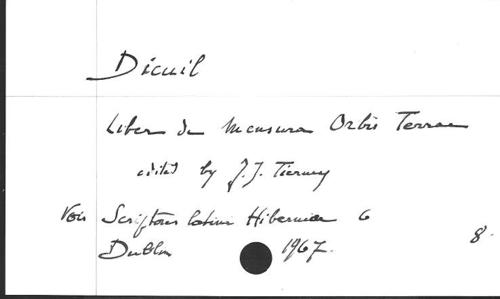 Dicuil
Liber de Mensura Orbis Terrae
edited by J.J. Tierney
Voir Scriptores latini Hiberniae 6
Dublin 1967.
8.